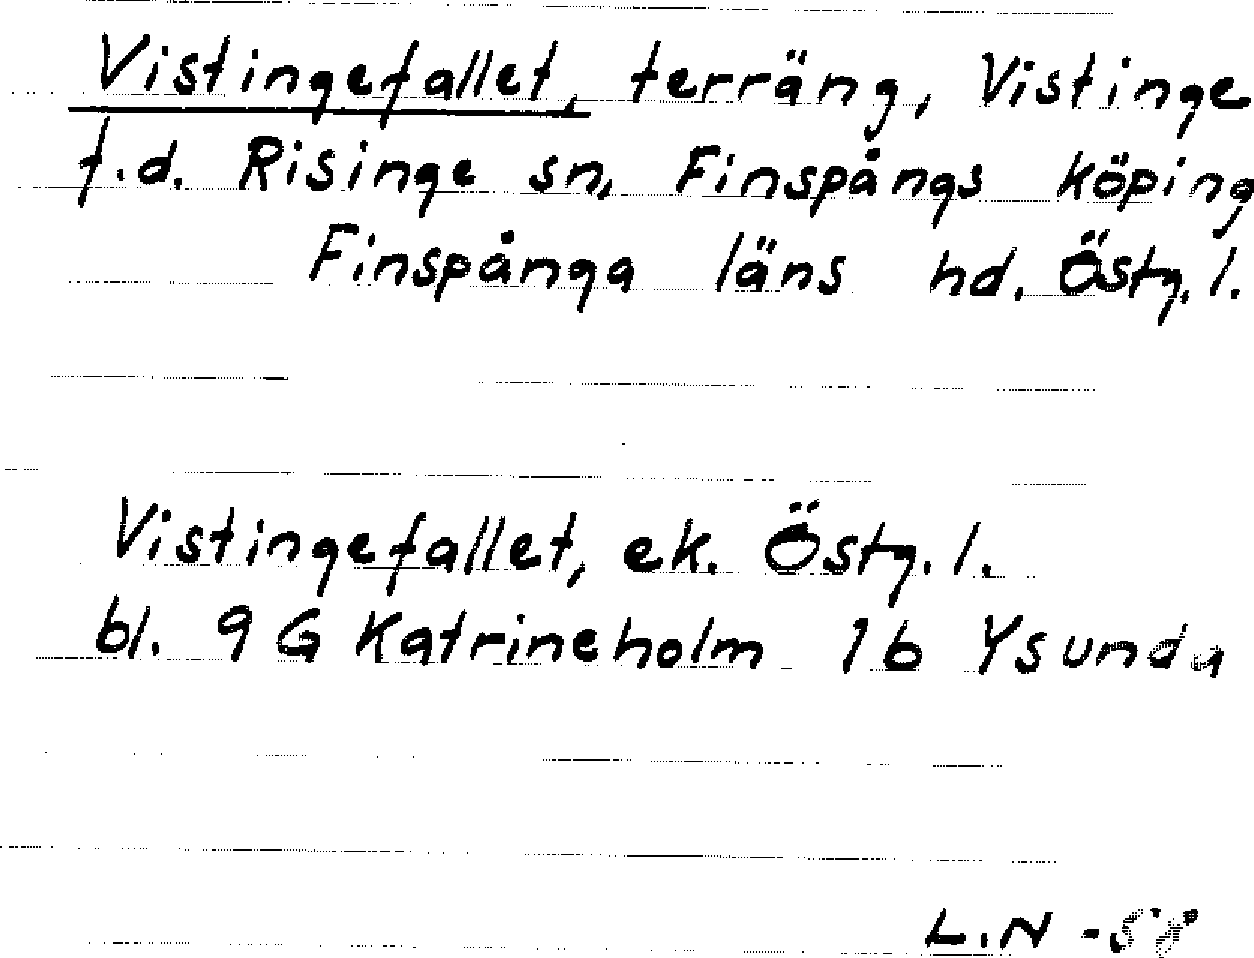 Vistingefallet, terräng, Vistinge
f.d. Risinge sn, Finspångs köping
Finspånga läns hd. Östg. l.
Vistingefallet, ek. Östg. l.
bl. 9 G Katrineholm 1 b Ysunda
L.N -58